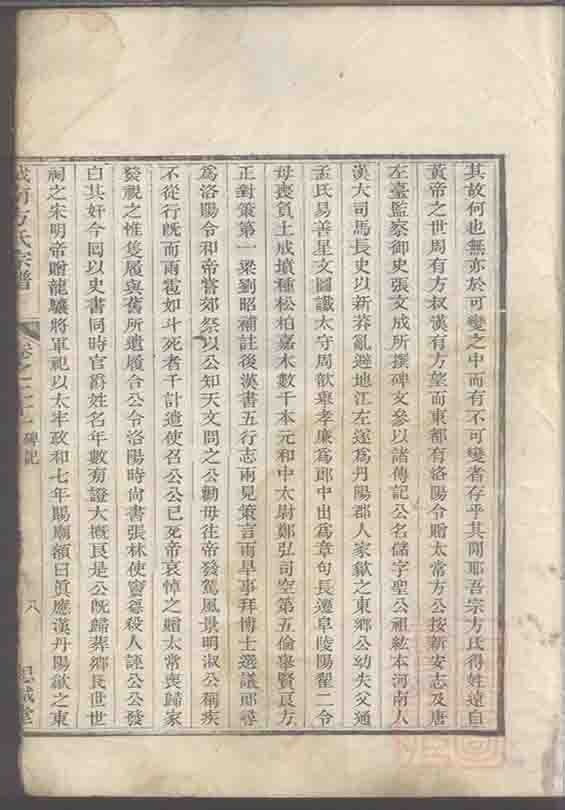 其故何也無亦於可變之中而有不可變者存乎其間耶吾宗方氏得姓遠自
黃帝之世周有方叔漢有方望而東都有洛陽令贈太常方公按新安志及唐
左臺監察御史張文成所撰碑文參以諸傳記公名儲字聖公祖紘本河南人
漢大司馬長史以新莽亂避地江左遂爲丹陽郡人家歙之東鄉公幼失父通
孟氏易善星文圖讖太守周歆舉孝廉爲郎中出爲章句長遷阜陵陽翟二令
母喪負土成墳種松柏嘉木數千本元和中太尉鄭弘司空第五倫舉賢良方
正對策第一梁劉昭補註後漢書五行志兩見策言雨旱事拜博士選議郎尋
爲洛陽令和帝嘗郊祭以公知天文問之公勸毋往帝發駕風景明淑公稱疾
不從行旣而雨雹如斗死者千計遣使召公公已死帝哀悼之贈太常喪歸家
發視之惟隻履與舊所遺履合公令洛陽時尚書張林使竇 殺人誣公公發
白其奸今囘以史書同時官爵姓名年數有證大槪良是公旣歸葬鄉民世世
祠之宋明帝贈龍驤將軍祀以太牢政和七年賜廟額曰眞應漢丹陽歙之東
城南方氏宗譜
卷之二十
碑記
八
思誠堂